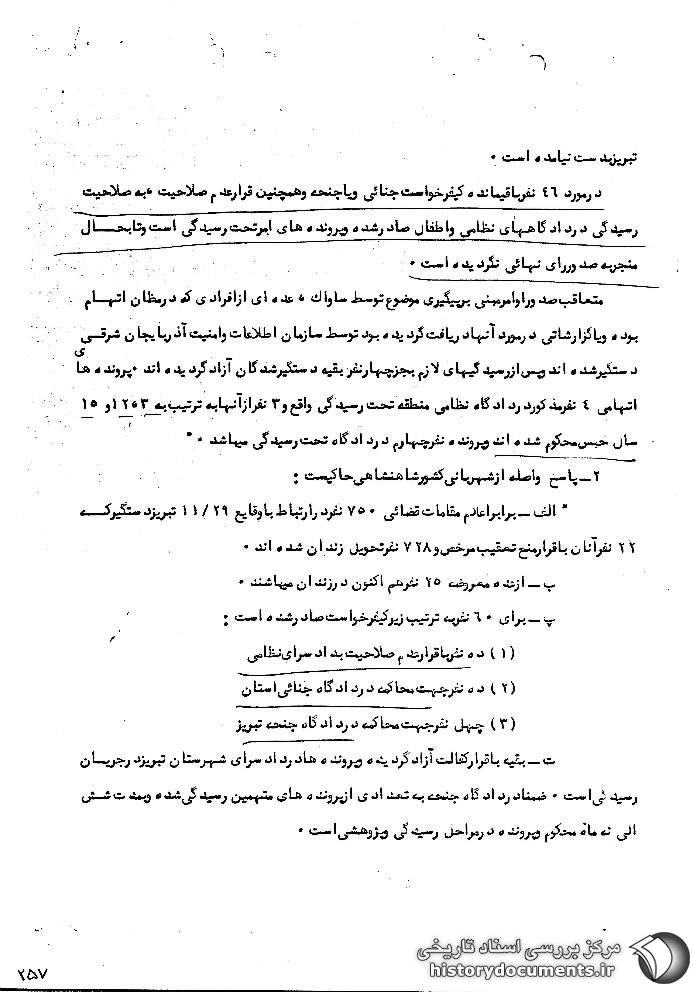 تبریز بدست نیامده است ۰
در مورد ٤٦ نفر باقیمانده کیفرخواست جنائی و یا جنحه و همچنین قرار عدم صلاحیت ، به صلاحیت
رسیدگی در دادگاههای نظامی و اطفال صادر شده و پرونده های امر تحت رسیدگی است و تابحال
منجر به صدور رای نهائی نگردیده است ۰
متعاقب صدور اوامر مبنی بر پیگیری موضوع توسط ساواک ، عده ای از افرادی که در مظان اتهام
بوده و یا گزارشاتی در مورد آنها دریافت گردیده بود توسط سازمان اطلاعات و امنیت آذربایجان شرقی
دستگیر شده اند و پس از رسیدگیهای لازم بجز چهار نفر بقیه دستگیرشدگان آزاد گردیده اند ۰ پرونده های
اتهامی ٤ نفر مذکور در دادگاه نظامی منطقه تحت رسیدگی واقع و ۳ نفر از آنها به ترتیب به ۳ و ۲ و ۱ و ۱۵
سال حبس محکوم شده اند و پرونده نفر چهارم در دادگاه تحت رسیدگی میباشد ۰ "
۲ ـ پاسخ واصله از شهربانی کشور شاهنشاهی حاکیست :
" الف ـ برابر اعلام مقامات قضائی ۷۵۰ نفر در ارتباط با وقایع ۱۱/۲۹ تبریز دستگیر که
۲۲ نفر آنان با قرار منع تعقیب مرخص و ۷۲۸ نفر تحویل زندان شده اند ۰
ب ـ از عده معروضه ۲۵ نفر هم اکنون در زندان میباشند ۰
پ ـ برای ٦۰ نفر به ترتیب زیر کیفرخواست صادر شده است :
(۱) ده نفر با قرار عدم صلاحیت به دادسرای نظامی
(۲) ده نفر جهت محاکمه در دادگاه جنائی استان
(۳) چهل نفر جهت محاکمه در دادگاه جنحه تبریز
ت ـ بقیه با قرار کفالت آزاد گردیده و پرونده ها در دادسرای شهرستان تبریز در جریان
رسیدگی است ۰ ضمناً در دادگاه جنحه به تعدادی از پرونده های متهمین رسیدگی شده و بمدت شش
الی نه ماه محکوم و پرونده در مراحل رسیدگی پژوهشی است ۰
مرکز بررسی اسناد تاریخی
historydocuments.ir
۲۵۷